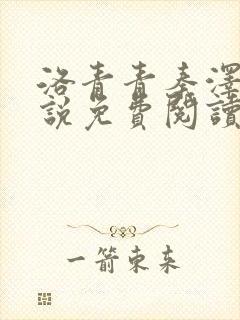 洛青青秦澤
說免費閱讀
一箭東來